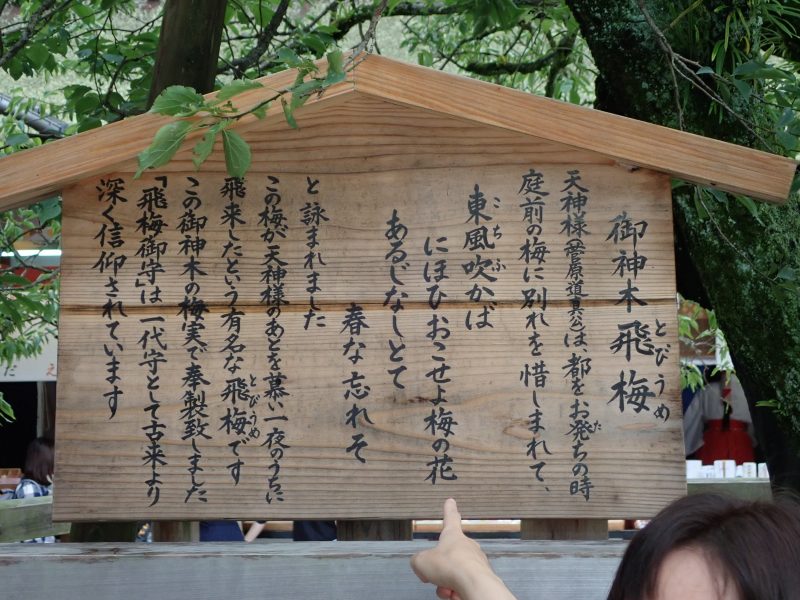 御神木飛梅
とびうめ
天神様(菅原道真公)は、都をお発ちの時
た
庭前の梅に別れを惜しまれて、
東風吹かば
こちふ
にほひおこせよ梅の花
あるじなしとて
春な忘れそ
と詠まれました
この梅が天神様のあとを慕い一夜のうちに
飛来したという有名な飛梅です
とびうめ
この御神木の梅実で奉製致しました
「飛梅御守」は一代守として古来より
深く信仰されています